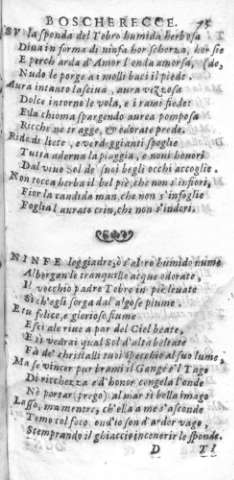 BOSCHERECCE. 75
SV la sponda del Tebro humida herbosa
Diua in forma di ninfa hor scherza, hor sie
E perch arda d'Amor l'onda amorosa, (de,
Nudo le porge a i molli baci il piede.
Aura intanto lasciua, aura vezzosa
Dolce intorno le vola, e i rami fiede:
E la chioma spargendo aurea pomposa
Ricche ne tragge, & odorate prede.
Ride di liete, e verdeggianti spoglie
Tutta adorna la piaggia, e noui honori
Dal viuo Sol de suoi begli occhi accoglie.
Non tocca herba il bel piè, che non s'infiori,
Fior la candida man, che non s'infoglie
Foglia l'aurato crin, che non s'indori.
NINFE leggiadre, ò s'altro humido nume
Albergan le tranquille acque odorate,
Il vecchio padre Tebro in piè leuate
Sì ch'egli sorga dal'algose piume.
E tu felice, e glorioso fiume
E sci ale riue a par del Ciel beate,
E se vedrai qual Sol d'alta beltate
Fà de' christalli tuoi specchio al suo lume,
Ma se vincer pur brami il Gange e'l Tago
Di ricchezza e d'honor congela l'onde
Nè portar (prego) al mar sì bella imago
Lasso, ma mentre, ch'ella a me s'asconde
Temo col foco ond'io son d'ardor vago,
Stemprando il ghiaccio incenerir le sponde.
D TI